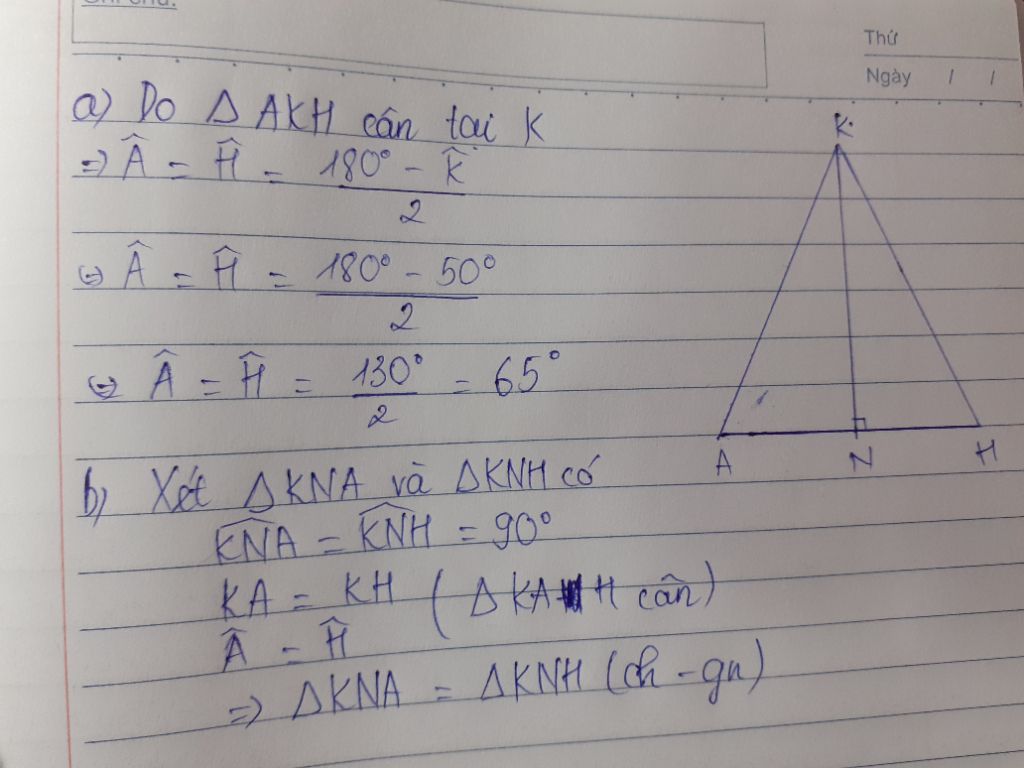 Thứ
Ngày / /
a) Do △ AKH cân tại K
=> Â = Ĥ = (180° - K̂)/2
<=> Â = Ĥ = (180° - 50°)/2
<=> Â = Ĥ = 130°/2 = 65°
b) Xét △KNA và △KNH có
K͡NA = K͡NH = 90°
KA = KH ( △ KAH cân)
Â = Ĥ
=> △KNA = △KNH (ch - gn)
K
A N H